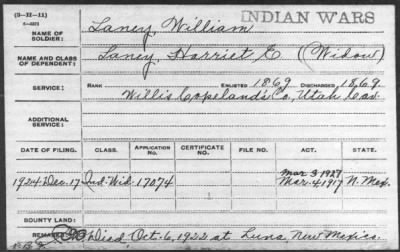 (3—H—11)
INDIAN WARS
NAME OF SOLDIER: Laney, William
NAME AND CLASS OF DEPENDENT: Laney, Harriet E (Widow)
SERVICE: RANK ENLISTED 1869 DISCHARGED 1869.
Willis Copeland's Co., Utah Cav.
ADDITIONAL SERVICE:
DATE OF FILING. CLASS. APPLICATION No. CERTIFICATE No. FILE No. ACT. STATE.
Mar 3 1927
1924 Dec. 17 Ind. Wid. 17074 Mar. 4, 1917 N. Mex.
COUNTY LAND:
REMARKS: Died Oct. 6, 1922 at Luna, New Mexico.